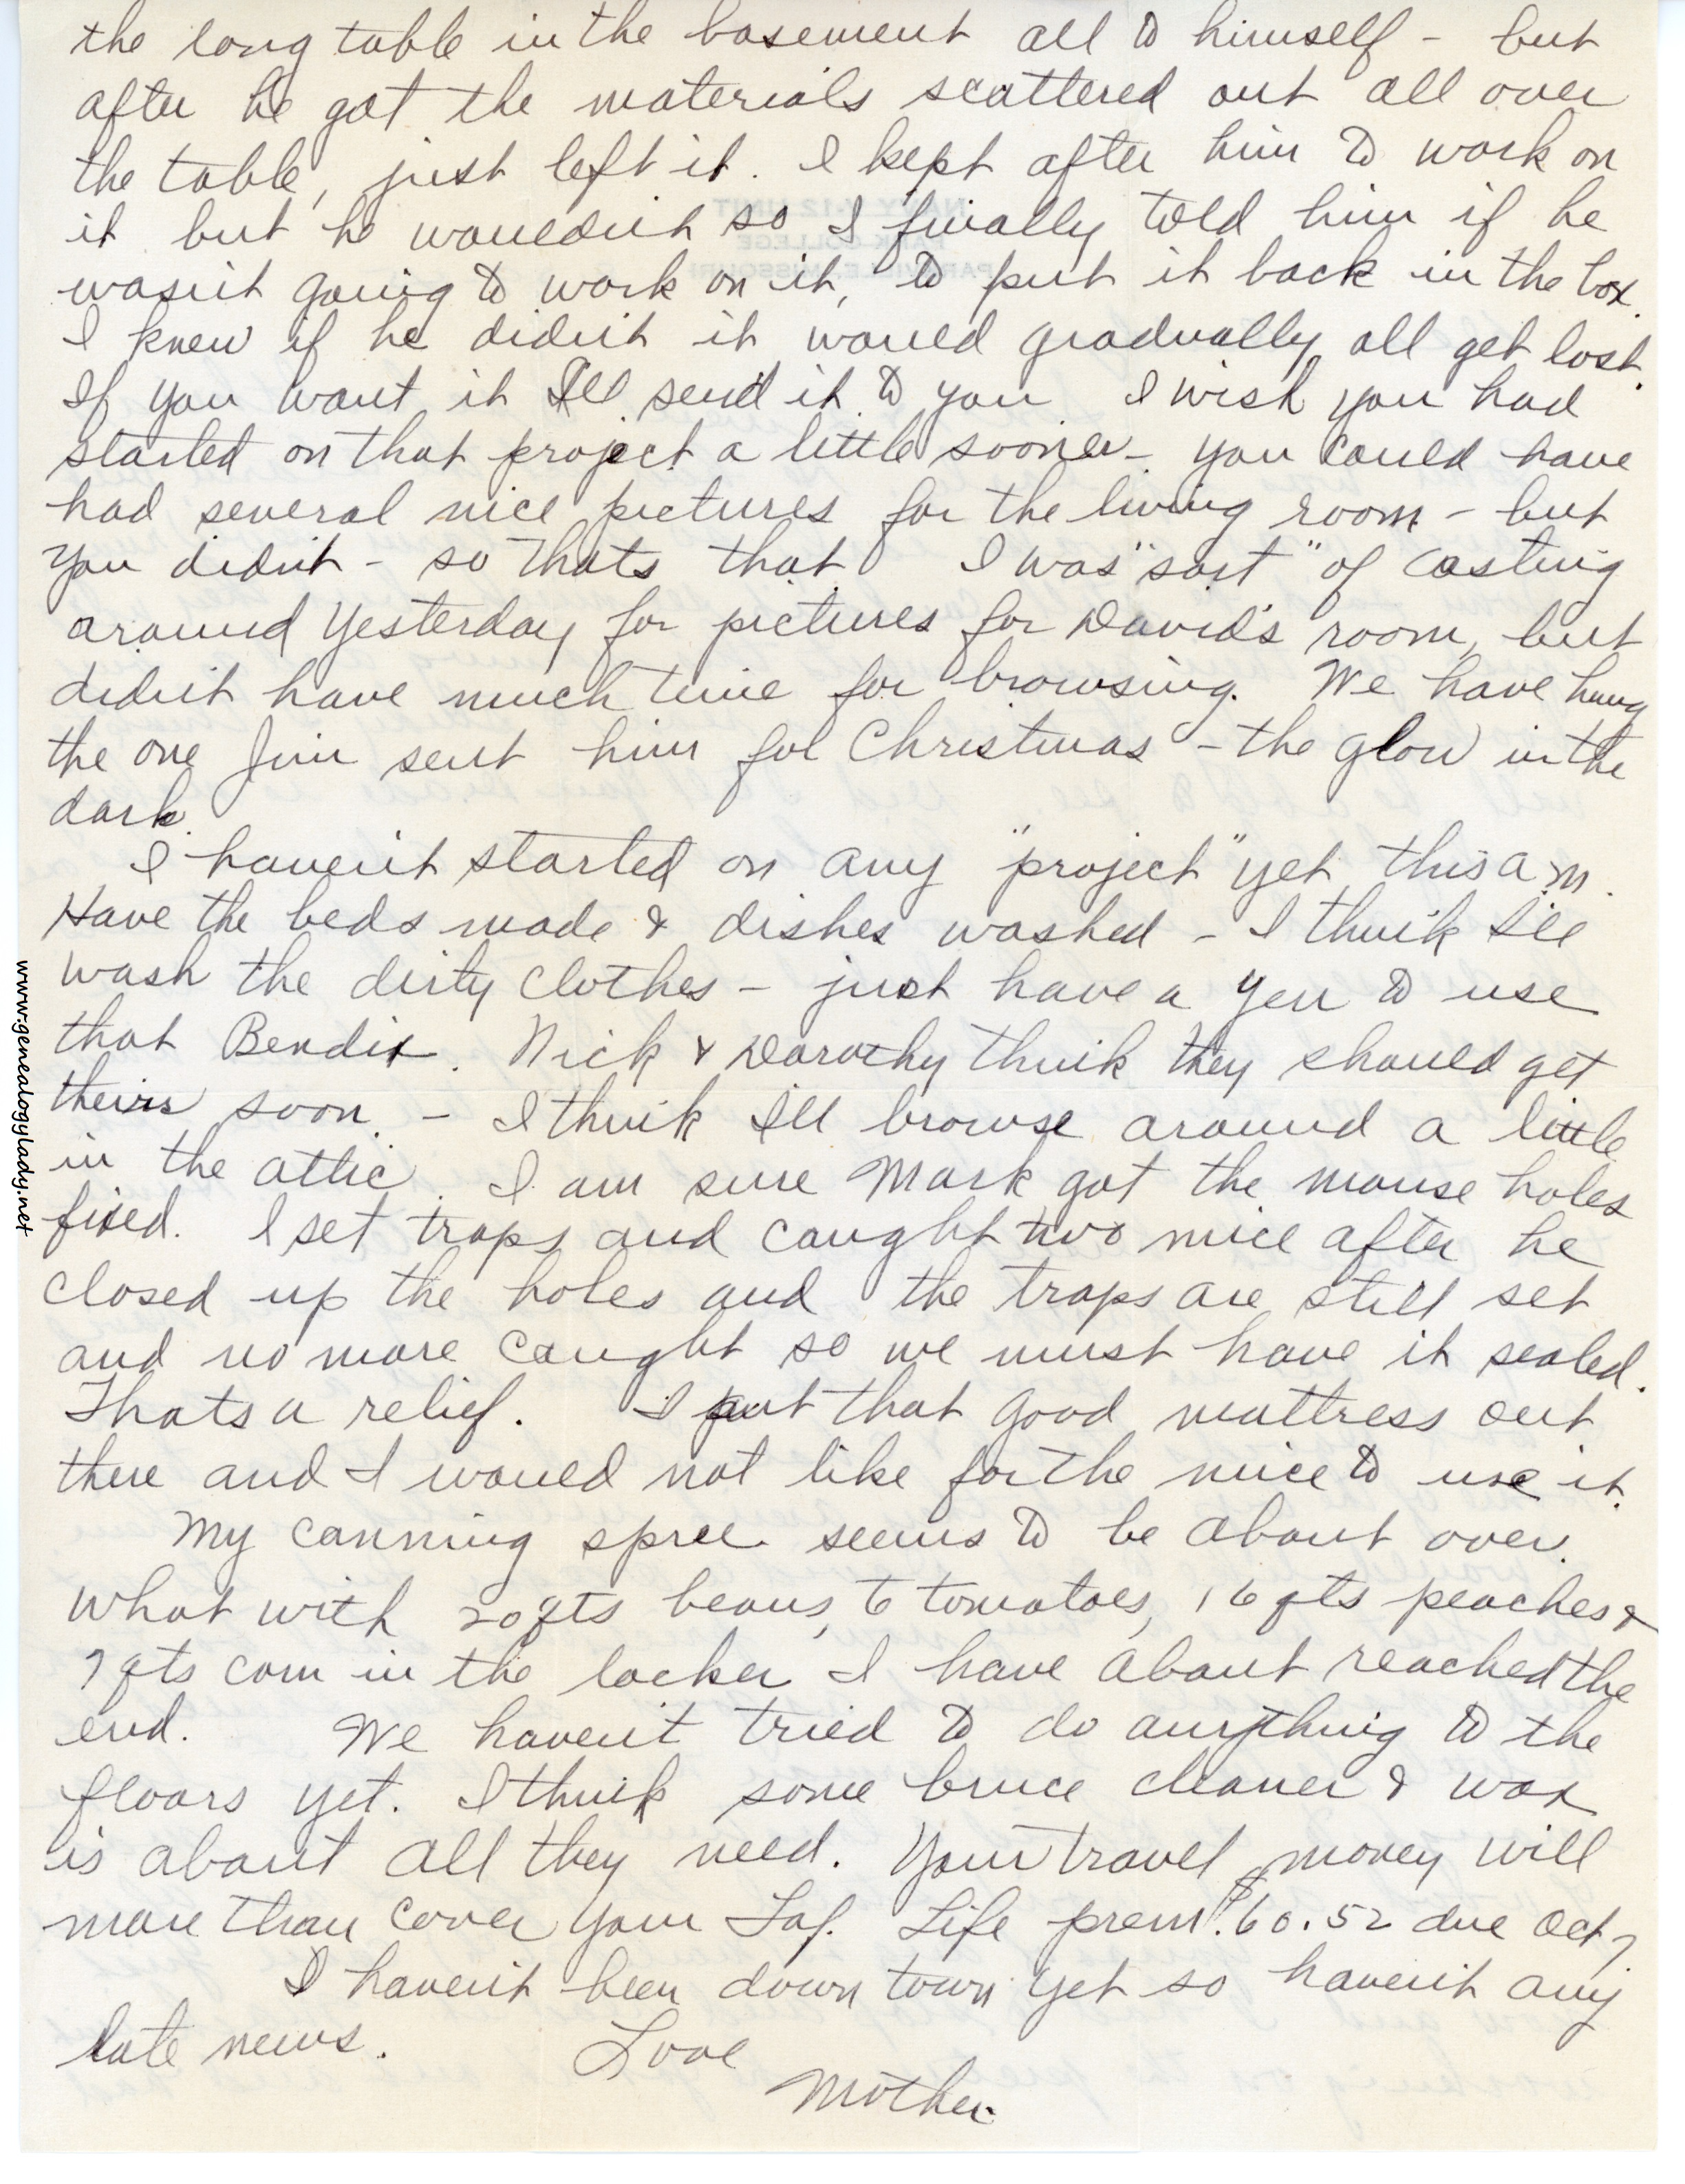 the long table in the basement all to himself - but
after he got the materials scattered out all over
the table, just left it. I kept after him to work on
it but he wouldn't so I finally told him if he
wasn't going to work on it, to put it back in the box.
I knew if he didn't it would gradually all get lost.
If you want it I'll send it to you I wish you had
started on that project a little sooner - you could have
had several nice pictures for the living room - but
you didn't - so thats that I was "sort" of casting
around yesterday for pictures for David's room, but
didn't have much time for browsing. We have hung
the one Jim sent him for Christmas - the glow in the
dark.
I haven't started on any "project" yet this a.m.
Have the beds made & dishes washed - I think I'll
wash the dirty clothes - just have a yen to use
that Bendix. Nick & Dorothy think they should get
theirs soon. - I think I'll browse around a little
in the attic. I am sure Mark got the mouse holes
fixed. I set traps and caught two mice after he
closed up the holes and the traps are still set
and no more caught so we must have it sealed.
Thats a relief. I put that good mattress out
there and I would not like for the mice to use it.
My canning spree seems to be about over.
What with 20 qts beans, 6 tomatoes, 16 qts peaches &
7 qts corn in the locker I have about reached the
end. We haven't tried to do anything to the
floors yet. I think some bruce cleaner & wax
is about all they need. Your travel money will
more than cover your Laf. Life prem. $60.52 due Oct 7
I haven't been down town yet so haven't any
late news. Love
Mother
www.genealogylady.net
NAVY V-12 UNIT
PARK COLLEGE
PARKVILLE, MISSOURI